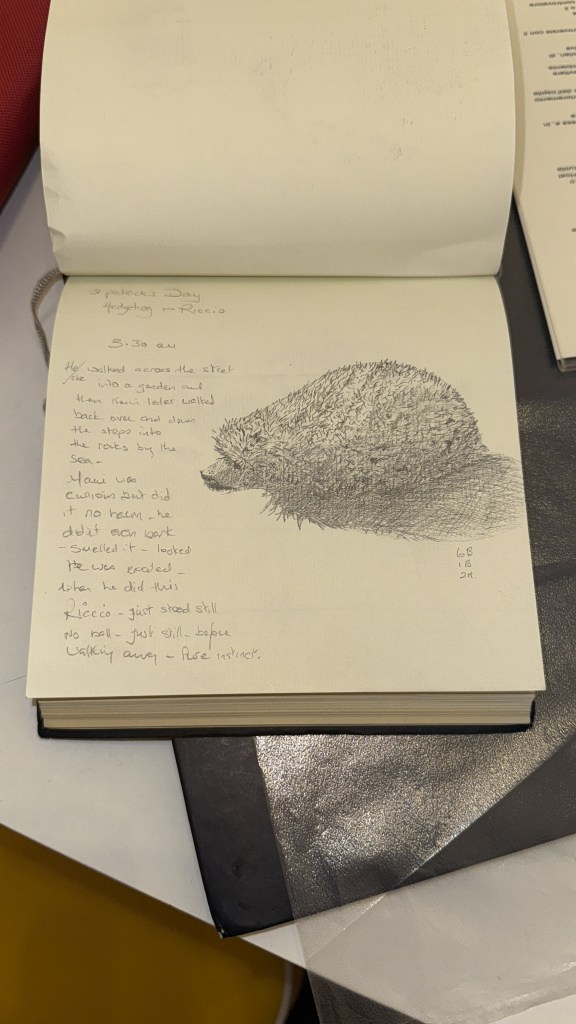 St Patricks Day
Hedgehog - Riccio
3.30 am
He/ walked across the street
/she into a garden and
then Remi later walked
back over and down
the steps into
the rocks by the
sea -
was
curious but did
it no harm - he
didn't even bark
- smelled it - looked
He was excited -
when he did this
Riccio - just stood still
No ball - just still - before
walking away - Pure instinct.
6B
1B
2H